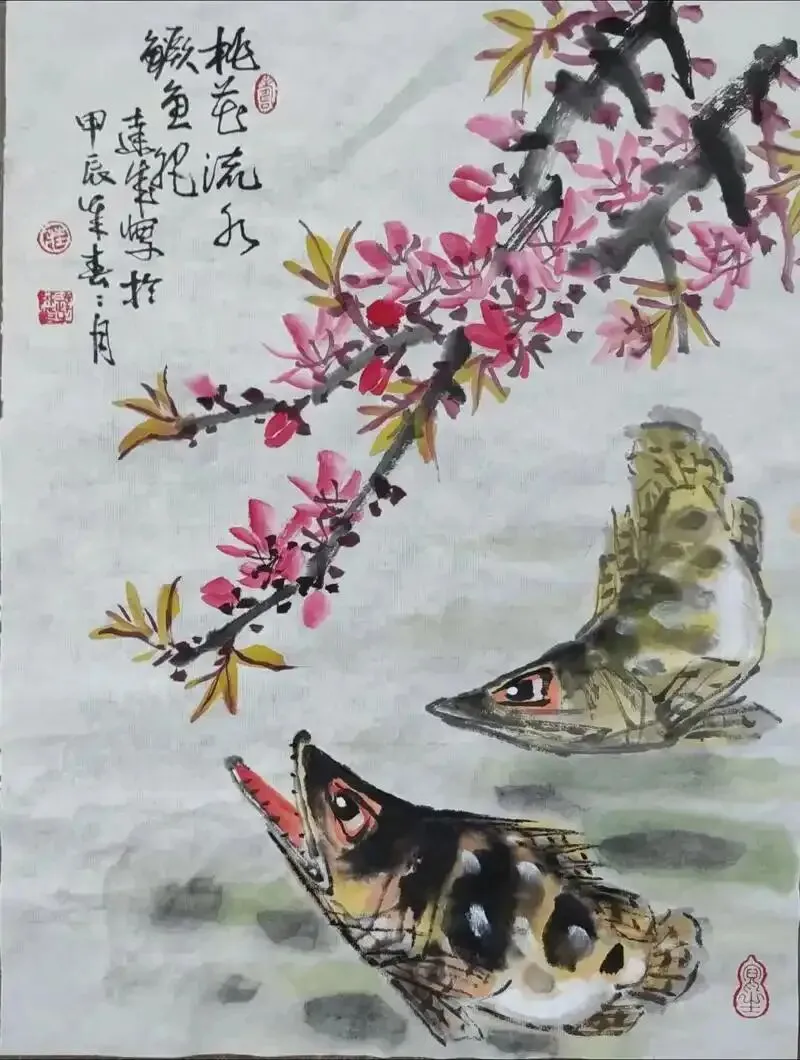 桃花流水
鳜鱼肥
写於
甲辰年春二月